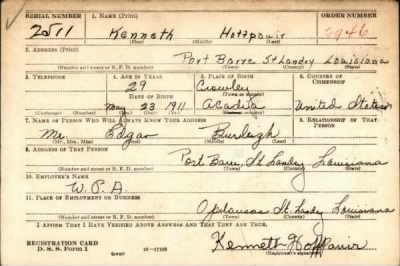 SERIAL NUMBER 1. NAME (Print) ORDER NUMBER
2511 Kenneth Hotzpauir 2946
(First) (Middle) (Last)
2. ADDRESS (Print)
Port Barre St Landry Louisiana
(Number and street or R. F. D. number) (Town) (County) (State)
3. TELEPHONE 4. AGE IN YEARS 5. PLACE OF BIRTH 6. COUNTRY OF CITIZENSHIP
29 Crowley
DATE OF BIRTH (Town or county)
May 23 1911 Acadia United States
(Exchange) (Number) (Mo.) (Day) (Yr.) (State or country)
7. NAME OF PERSON WHO WILL ALWAYS KNOW YOUR ADDRESS 8. RELATIONSHIP OF THAT PERSON
Mr. Edgar Burleigh
(Mr., Mrs., Miss) (First) (Middle) (Last)
9. ADDRESS OF THAT PERSON
Port Barre, St. Landry Louisiana
(Number and street or R. F. D. number) (Town) (County) (State)
10. EMPLOYER'S NAME
W.P.A.
11. PLACE OF EMPLOYMENT OR BUSINESS
St. Landry Louisiana
(Number and street or R. F. D. number) (Town) (County) (State)
I AFFIRM THAT I HAVE VERIFIED ABOVE ANSWERS AND THAT THEY ARE TRUE.
REGISTRATION CARD
D. S. S. Form 1 (over) Kenneth
(Registrant's signature)